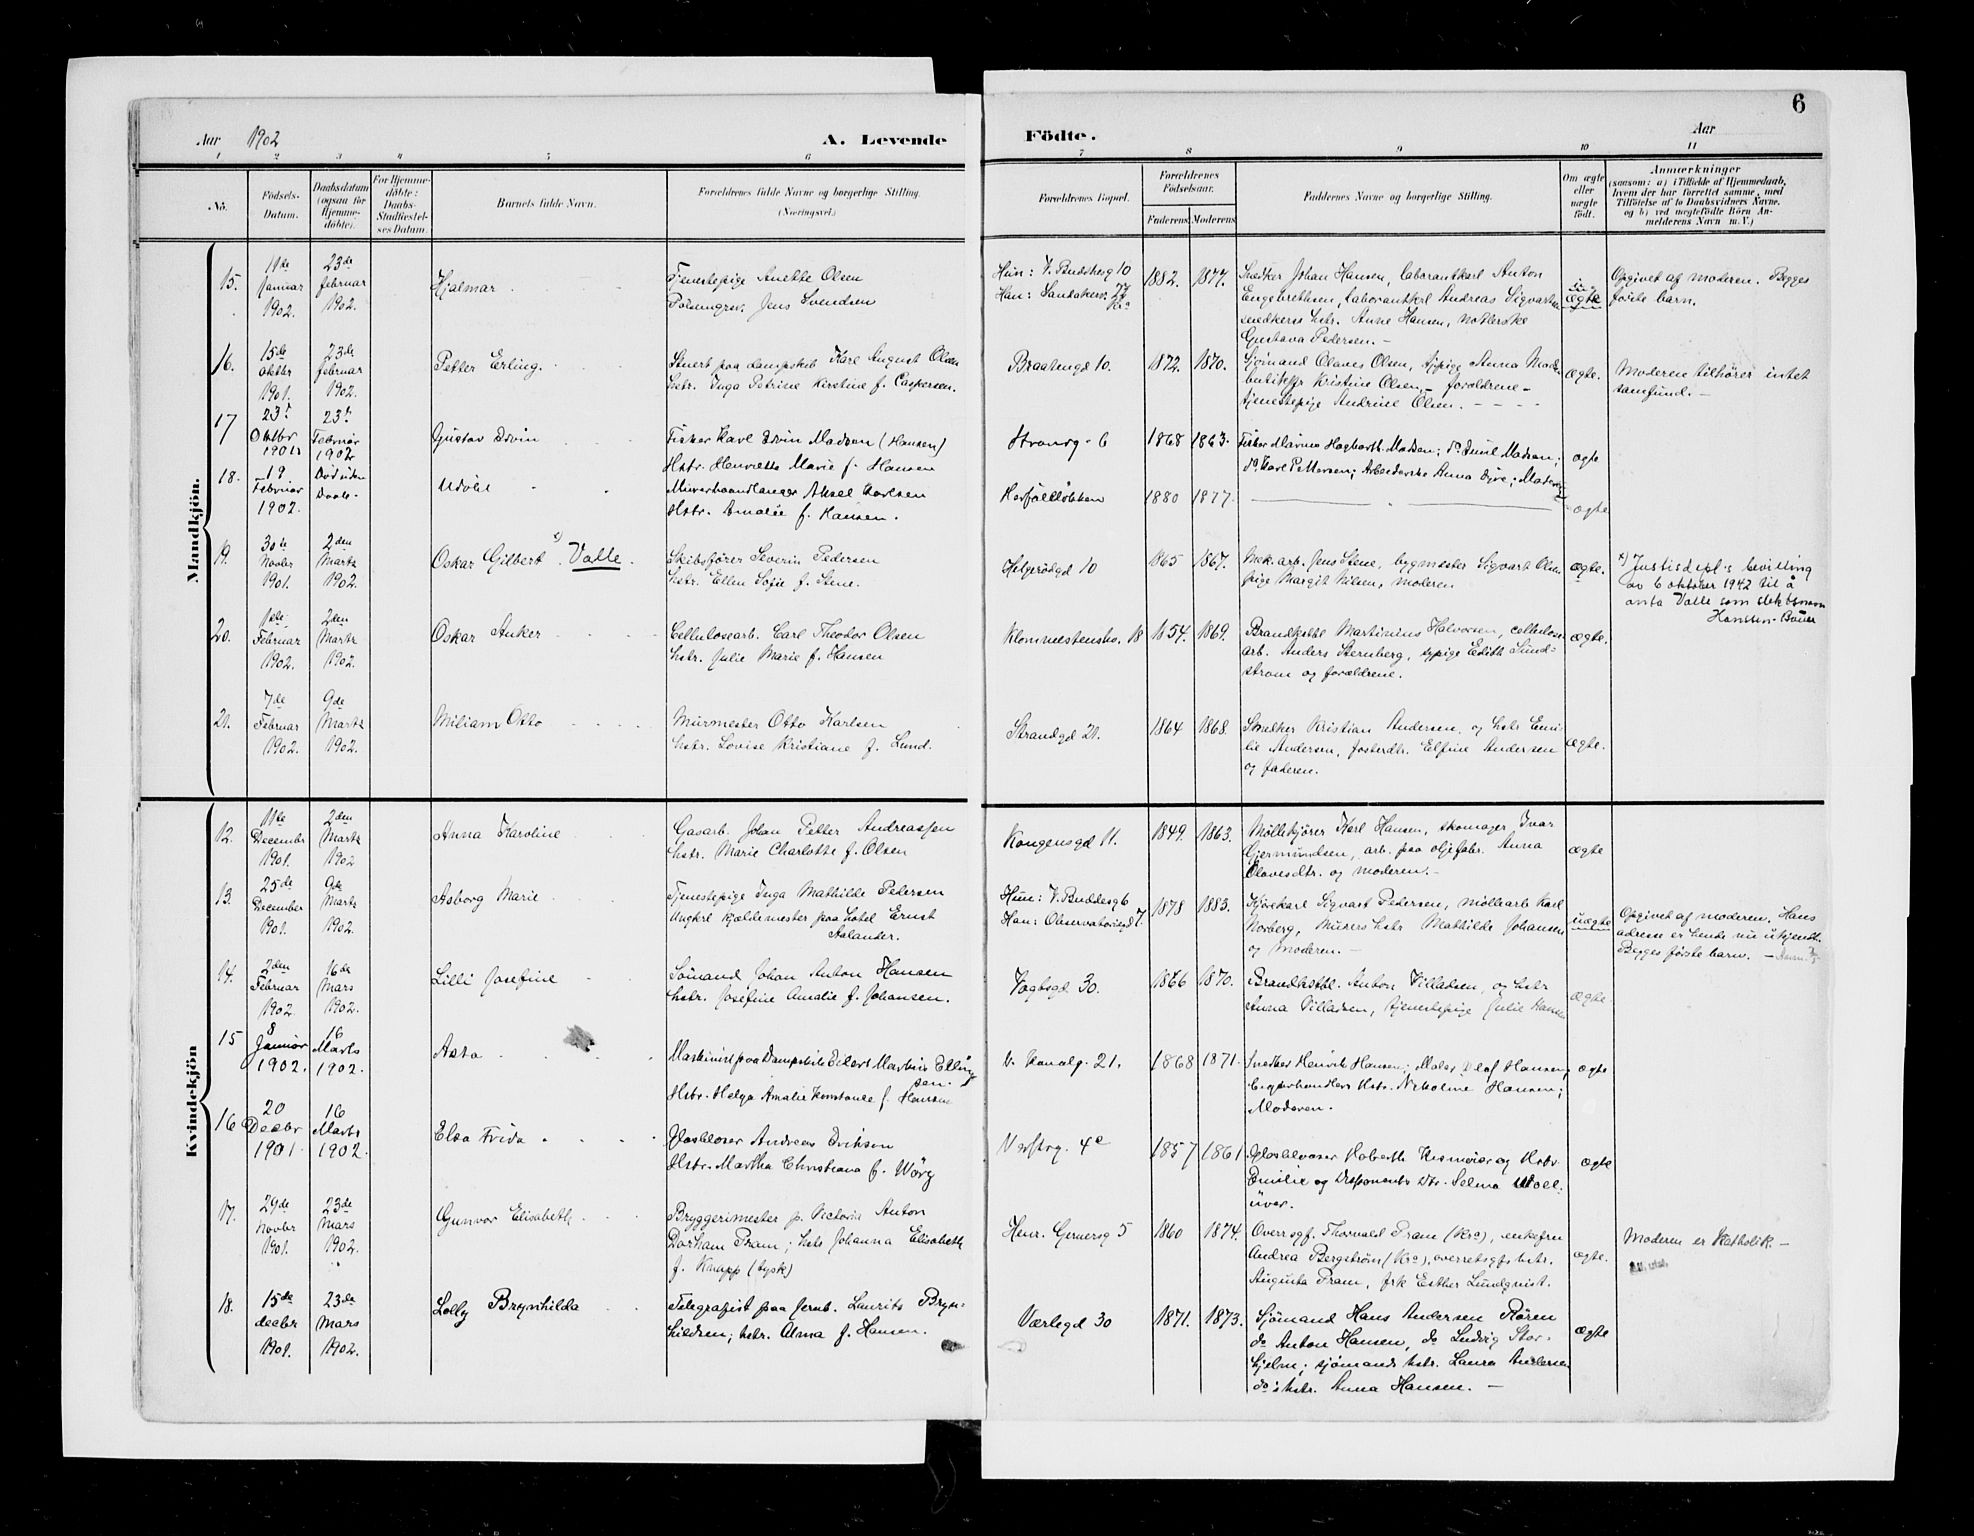 6
Aar 1902 A. Levende Födte. Aar
1 2 3 4 5 6 7 8 9 10 11
No. Födsels-Datum. Daabsdatum (ogsaa for Hjemme-döbte). For Hjemme-döbte: Daabs-Stadfæstel-ses Datum. Barnets fulde Navn. Forældrenes fulde Navne og borgerlige Stilling. (Næringsvei.) Forældrenes Bopæl. Forældrenes Födselsaar. Faderens Moderens Faddernes Navne og borgerlige Stilling. Om ægte eller uægte födt. Anmærkninger (saasom: a) i Tilfælde af Hjemmedaab, hvem der har forrettet samme, med Tilföielse af to Daabsvidners Navne, og b) ved uægtefödte Börn An-melderens Navn m. V.)
Mandkjön.
15. 11te Januar 1902. 23de februar 1902. Hjalmar
Tjenestepige Anette Olsen
Jens Svendsen
Hun: V. Budsberg 10
Han: Sandakerv. 1882. 1877.
Snedker Johan Hansen, laborantkarl Anton
Engebrethsen, laborantkarl Andreas Sigvartsen
snedkers hstr. Anne Hansen,
Gustava Pedersen. —
uægte
Opgivet af moderen. Begges
første barn.
16. 15de oktbr 1901. 23de februar 1902. Petter Erling.
Stuert paa Dampskib Karl August Olsen
hstr. Inga Petrine Kirstine f. Caspersen.
Braatengd 10. 1872. 1870.
Sjömand Olaves Olsen, sypige Anna
Kristine Olsen — forældrene —
tjenestepige Andrine Olsen. — — —
ægte.
Moderen tilhører intet
samfund. —
17 23 Oktbr 1901 23 Februar 1902 Gustav Edvin
Fisker Karl Edvin Madsen (Hansen)
Hstr. Henriette Marie f. Hansen
Strandg. 6 1868 1863.
Fisker Marius Hagbarth Madsen; do Emil Madsen;
do Karl Pettersen; Arbeiderske Anna Dyre; Moderen
ægte
18. 19 Februar 1902. Død uden Daab. Udöbt
Murerhaandlanger Aksel Karlsen
Hstr. Amalie f. Hansen.
Herföllökken 1880 1877.
ægte
19. 30te Novbr 1901. 2den Marts 1902. Oskar Gilbert x) Valle.
Skibsfører Severin Pedersen
hstr. Ellen Sofie f. Stene.
Helgerödgd 10 1865 1867.
Mek. arb. Jens Stene, bygmester Sigvart Olsen
pige Margit Nilsen, moderen.
ægte.
x) Justisdept.s bevilling
av 6 oktober 1942 til å
anta Valle som slektsnavn
Hanssen-Bauer
20. 1ste Februar 1902. 2den Marts 1902. Oskar Anker
Cellulosearb. Carl Theodor Olsen
hstr. Julie Marie f. Hansen
Klommestensbo. 18 1854. 1869.
Brandkstbl. Martinius Halvorsen, cellulose
arb. Anders Sternberg, sypige Edith Sund-
strøm og forældrene.
ægte.
21. 7de Februar 1902. 9de Marts 1902. Miliam Otto
Murmester Otto Karlsen
hstr. Lovise Kristiane f. Lund.
Strandgd 21. 1864 1868.
Snedker Kristian Andersen, og hstr Emi-
lie Andersen, fosterdtr. Elfine Andersen
og faderen.
ægte.
Kvindekjön
12. 11te December 1901. 2den Marts 1902 Anna Karoline
Gasarb. Johan Petter Andreassen
hstr. Marie Charlotte f. Olsen
Kongensgd 11. 1849. 1863.
Møllekjører Karl Hansen, skomager Ivar
Gjermundsen, arb. paa oljefabr. Anna
Olavesdtr. og moderen. —
ægte
13. 25de December 1901. 9de Marts 1902. Asborg Marie
Tjenestepige Inga Mathilde Pedersen
Ungkrl kjældermester paa hotel Ernst
Aalander.
Hun: V. Buddesg 6
Han: Observatoriegd 7. 1878 1883.
Kjørekarl Sigvart Pedersen, møllearb Karl
Norberg, Murers hstr Mathilde Johansen
og moderen. —
uægte
Opgivet af moderen. Hans
adresse er hende nu ukjendt.
Begges første barn. —
14. 2den Februar 1902. 16de Mars 1902. Lilli Josefine
Sömand Johan Anton Hansen
hstr. Josefine Amalie f. Johansen.
Vogtsgd 30. 1866 1870.
Brandkstbl. Anton Villadsen, og hstr
Anna Villadsen, tjenestepige Julie Hansen
ægte
15 8 Januar 1902. 16 Marts 1902. Asta
Maskinist paa Dampskib Eilert Martinius Elling
sen.
Hstr. Helga Amalie Konstance f. Hansen
V. Kanalg. 21. 1868 1871.
Snedker Henrik Hansen; Maler Olaf Hansen;
hstr. Nikoline Hansen;
Moderen.
ægte
16 20 Decbr 1901. 16 Marts 1902. Elsa Frida
Glasblaser Andreas Erikson
Hstr. Martha Christiana f. Wörg
Verftsg. 4c 1857 1861
Emilie og Disponents Dtr. Selma
ægte
17. 29de Novbr 1901. 23de Mars 1902. Gunvor Elisabeth
Bryggerimester p. Victoria Anton
Dorham Pram; hstr Johanna Elisabeth
f. Knapp (tysk)
Henr. Gernersg 5 1860 1874.
Overrsgf. Thorvald Pram (Kra), enkefru
Andrea Bergström (Kra), overretsgfs hstr.
Augusta Pram, frk Esther Lundqvist.
ægte.
Moderen er Katholik. —
18. 15de decbr 1901. 23de Mars 1902. Lolly Brynhilda
Telegrafist paa Jernb. Laurits Bryn-
hildsen; hstr. Alma f. Hansen.
Værlegd 30 1871. 1873.
Sjömand Hans Andersen Rören
do Anton Hansen, do Ludvig Stor-
hjelm; sjömands hstr. Laura Andersen
do's hstr. Anna Hansen. —
ægte